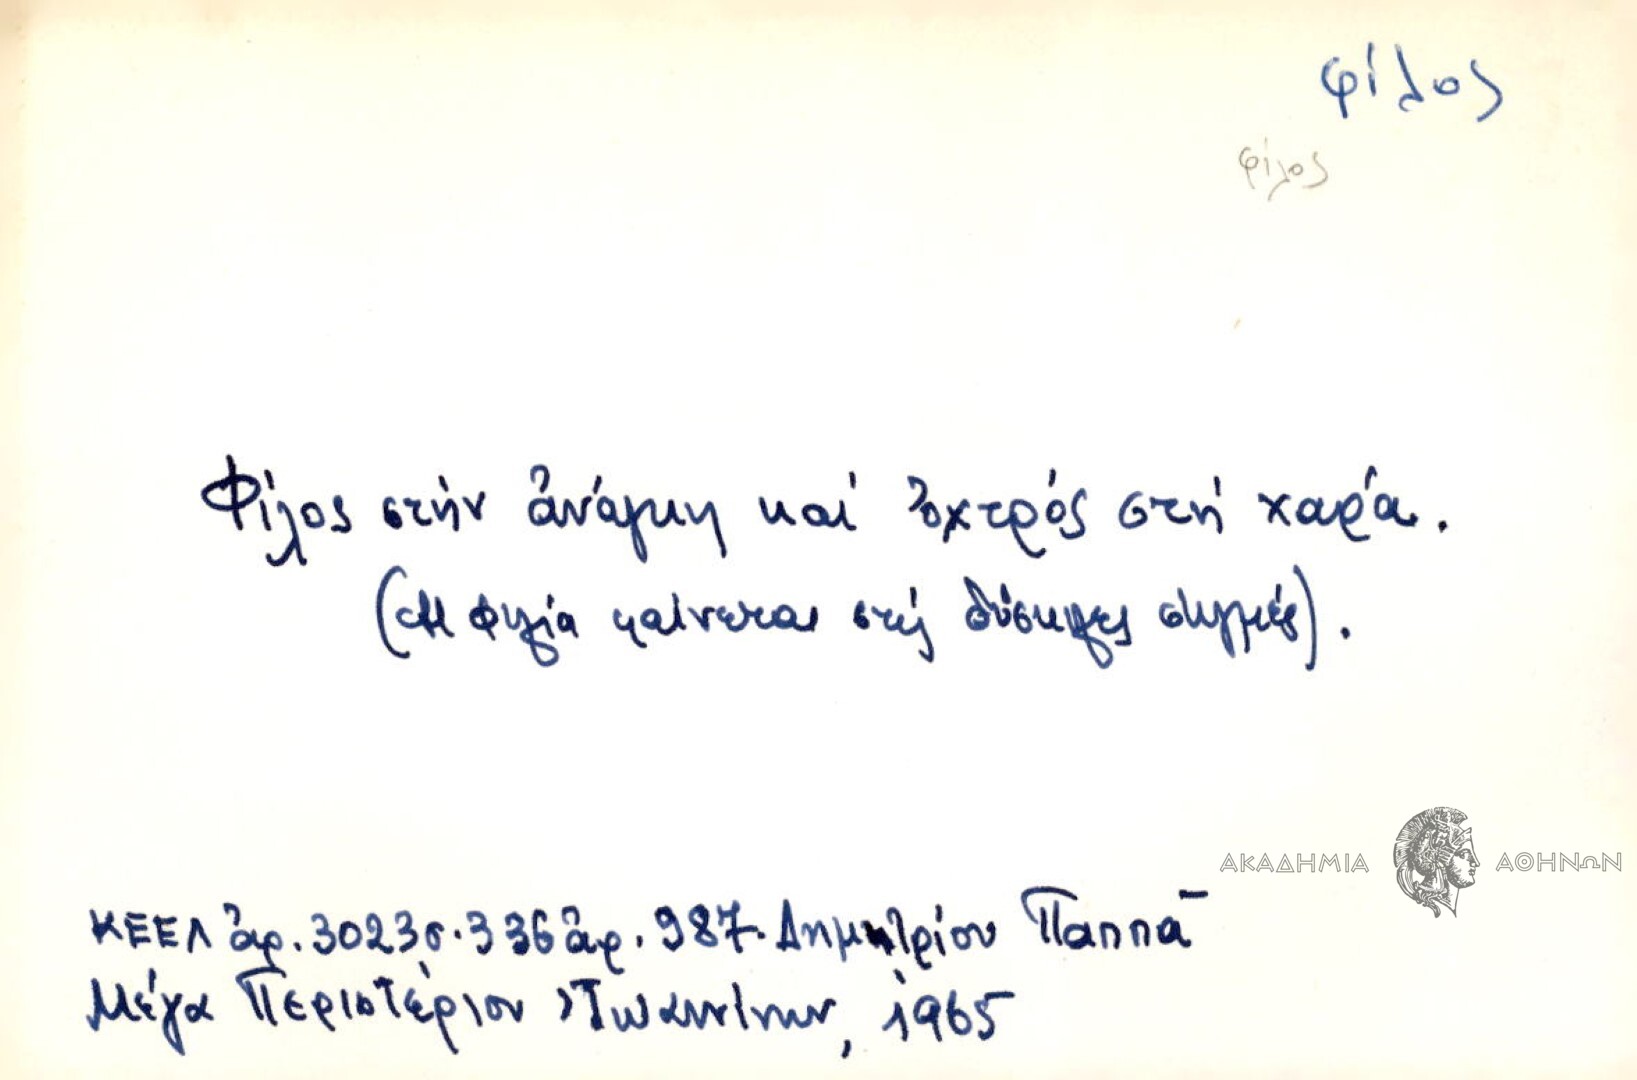 φίλος
φίλος
Φίλος στήν ἀνάγκη καί ὀχτρός στή χαρά.
(Ἡ φιλία φαίνεται στίς δύσκολες στιγμές).
ΑΚΑΔΗΜΙΑ ΑΘΗΝΩΝ
ΚΕΕΛ ἀρ. 3023 σ. 336 ἀρ. 987. Δημητρίου Παππᾶ
Μέγα Περιστέριον Ἰωαννίνων, 1965